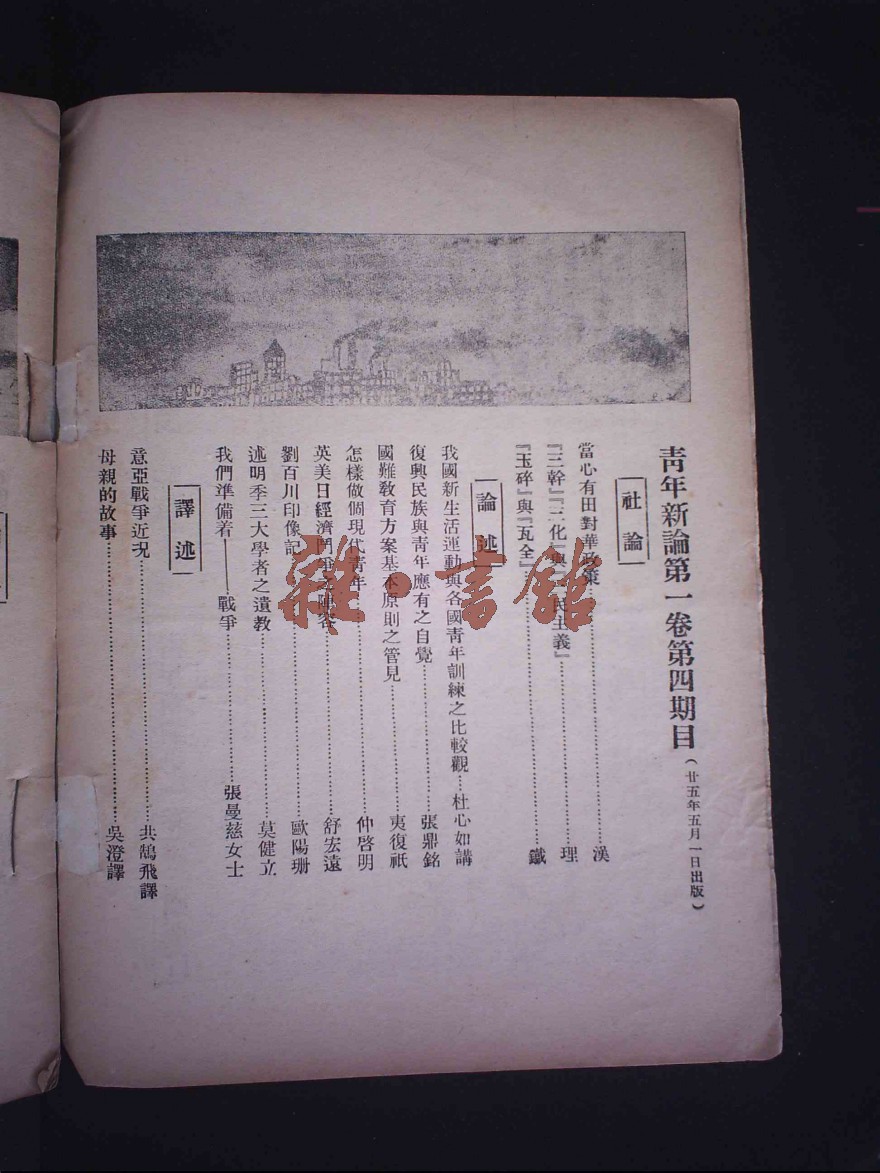 青年新論第一卷第四期目(廿五年五月一日出版)
社論
當心有田對華政策……漢
『三幹』『三化』與『 民主義』……理
『玉碎』與『瓦全』……鐵
論述
我國新生活運動與各國青年訓練之比較觀……杜心如講
復興民族與青年應有之自覺……張鼎銘
國難教育方案基本原則之管見……夷復祇
怎樣做個現代青年……仲啓明
英美日經濟鬥爭之陣容……舒宏遠
劉百川印像記……歐陽珊
述明季三大學者之遺教……莫健立
我們準備着——戰爭……張曼慈女士
譯述
意亞戰爭近況……共鵠飛譯
母親的故事……吳澄譯
雜·書館